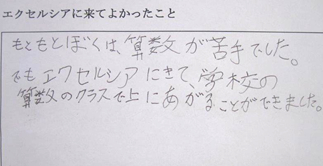 エクセルシアに来てよかったこと
もともとぼくは、算数が苦手でした。
でもエクセルシアにきて、学校の
算数のクラスで上にあがることができました。